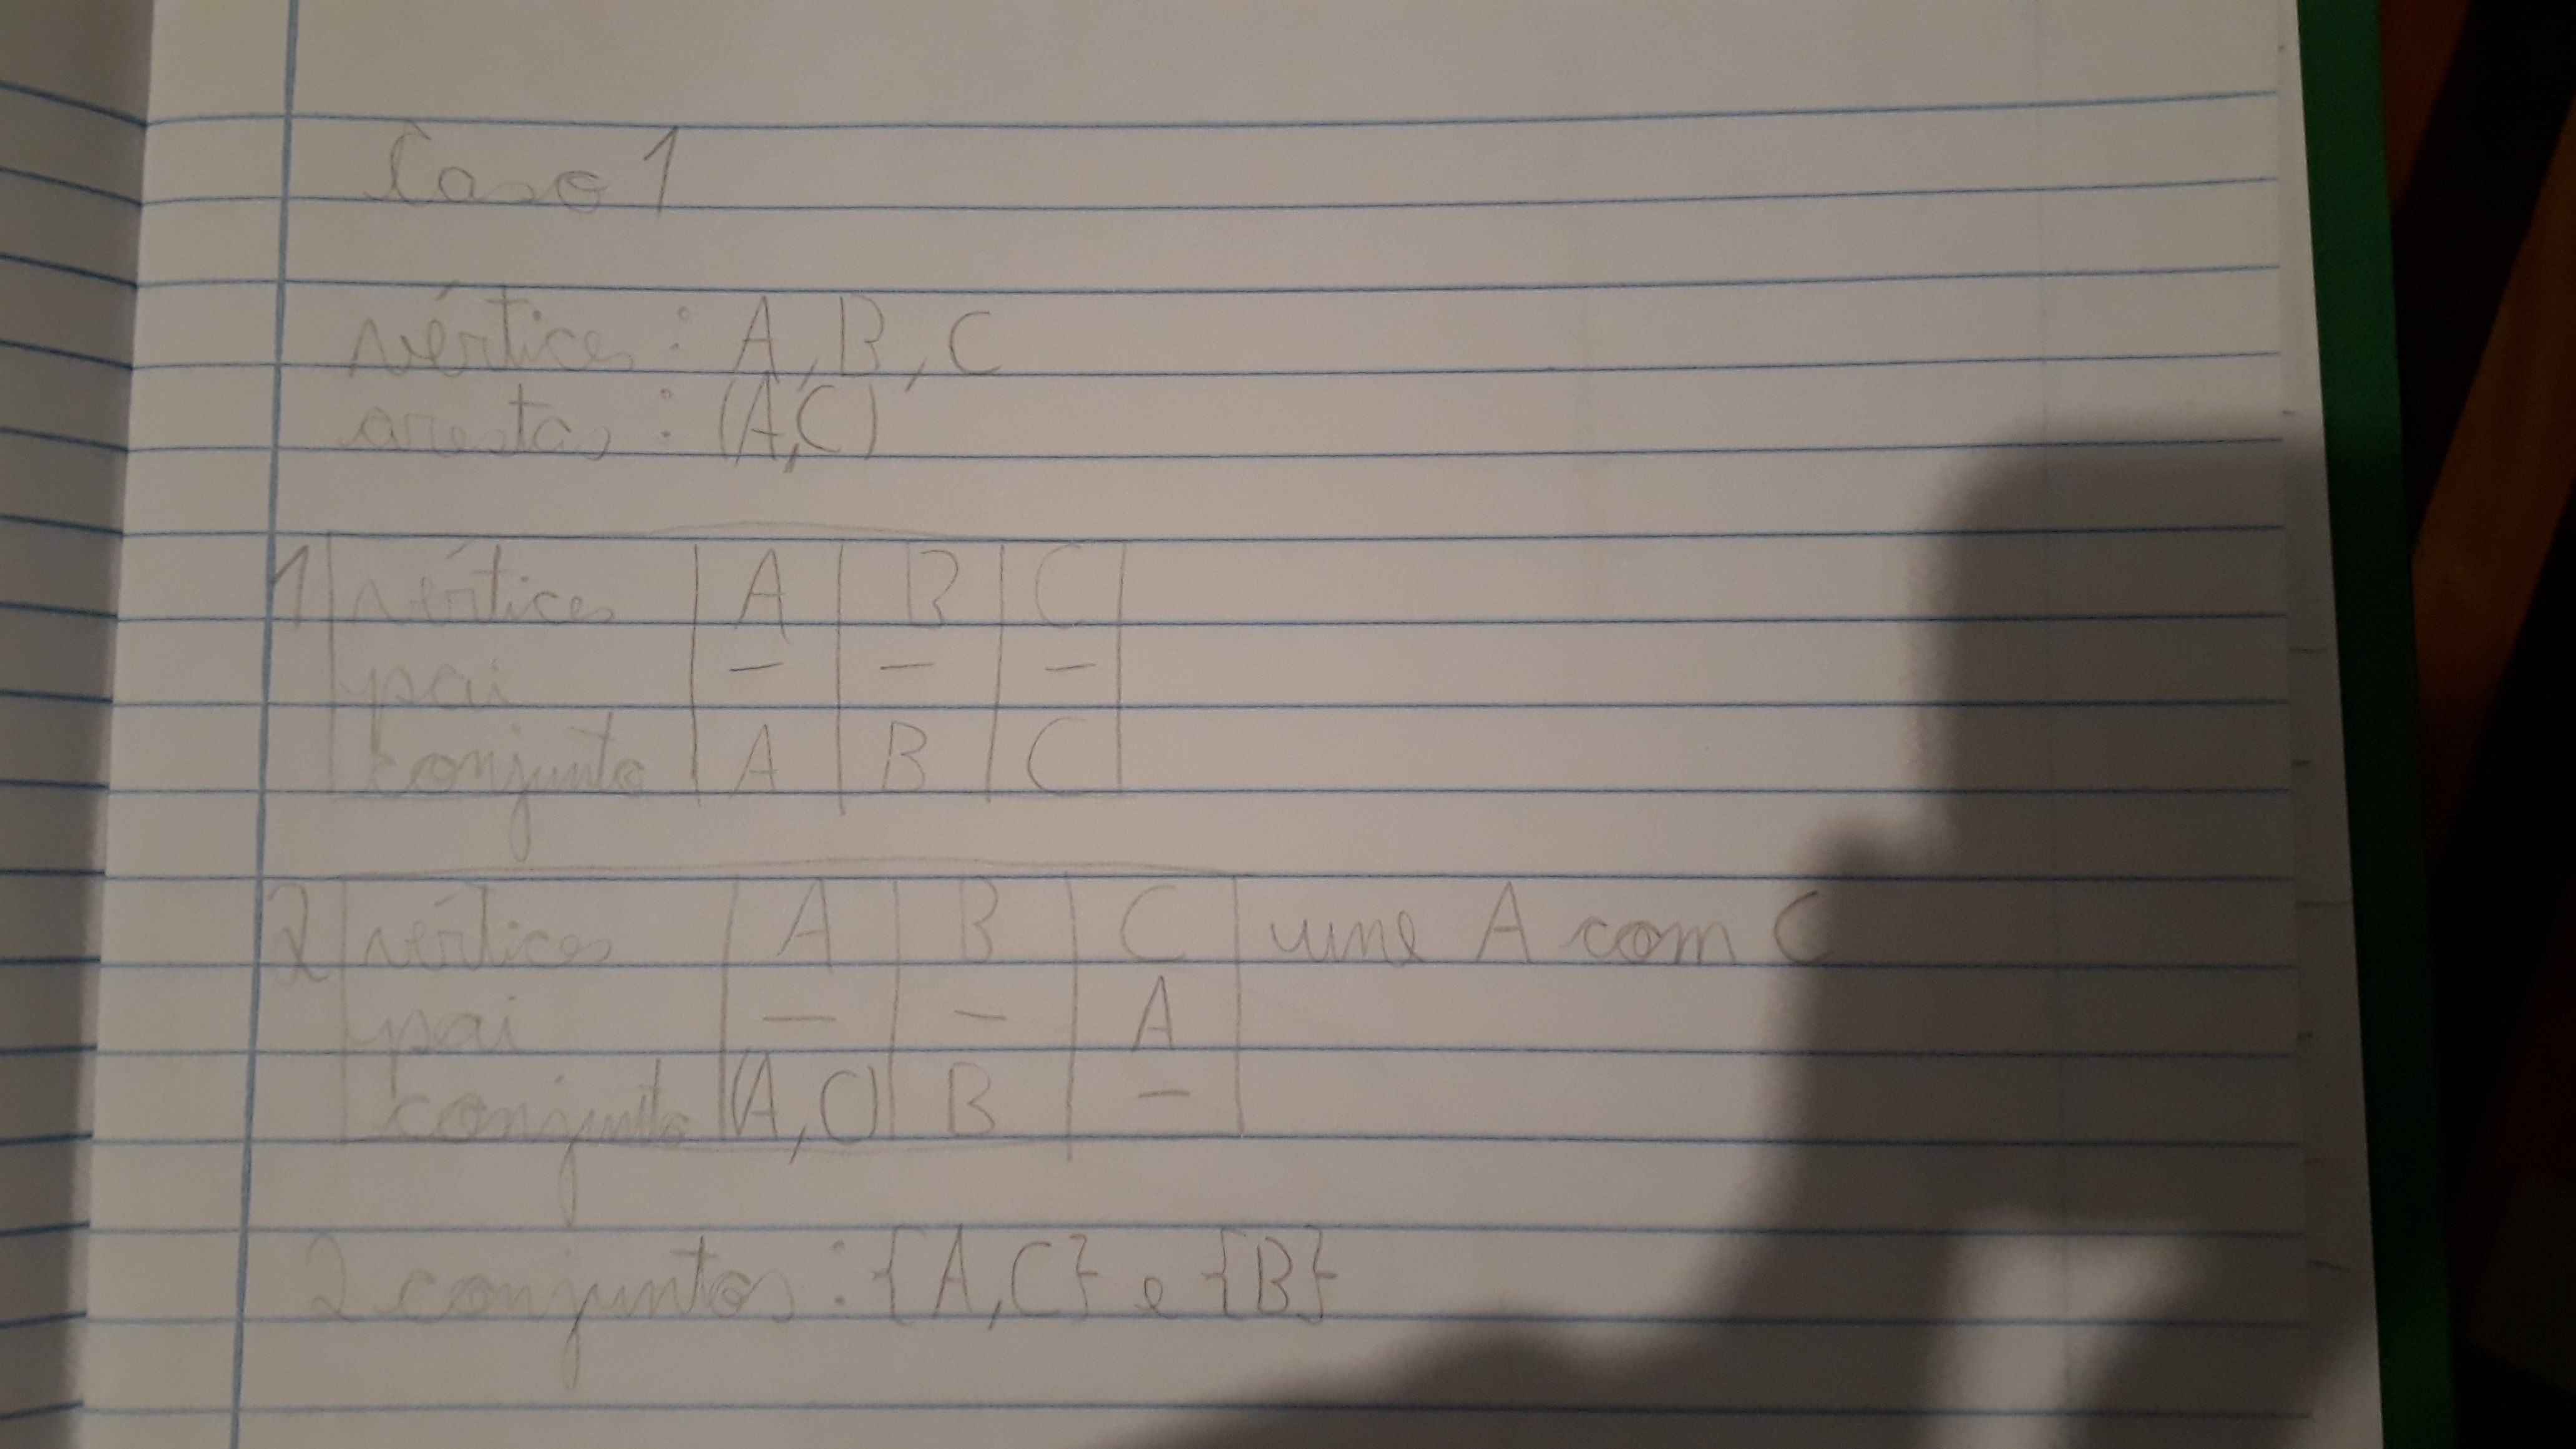 Caso 1
vértices : A, B, C
arestas : (A, C)
1 vértices A B C
pai - - -
conjunto A B C
2 vértices A B C une A com C
pai - - A
conjunto A, C B -
2 conjuntos : {A, C} e {B}